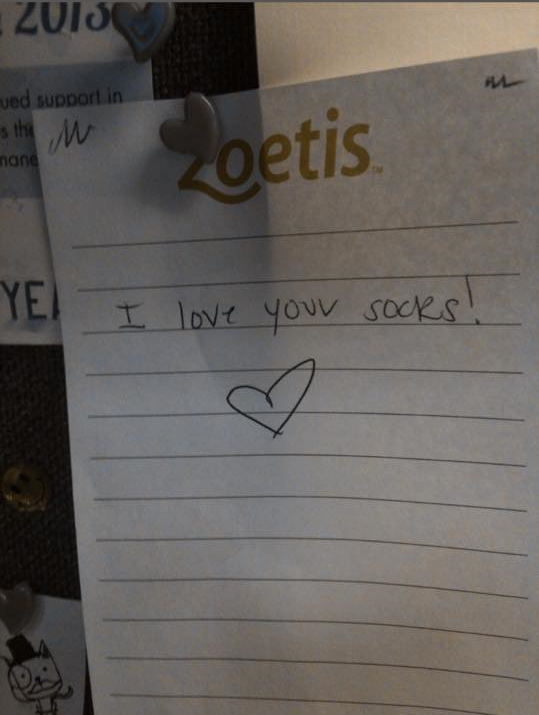 2013
ued support in
s the
mane
YEA
zoetis™
I love your socks!